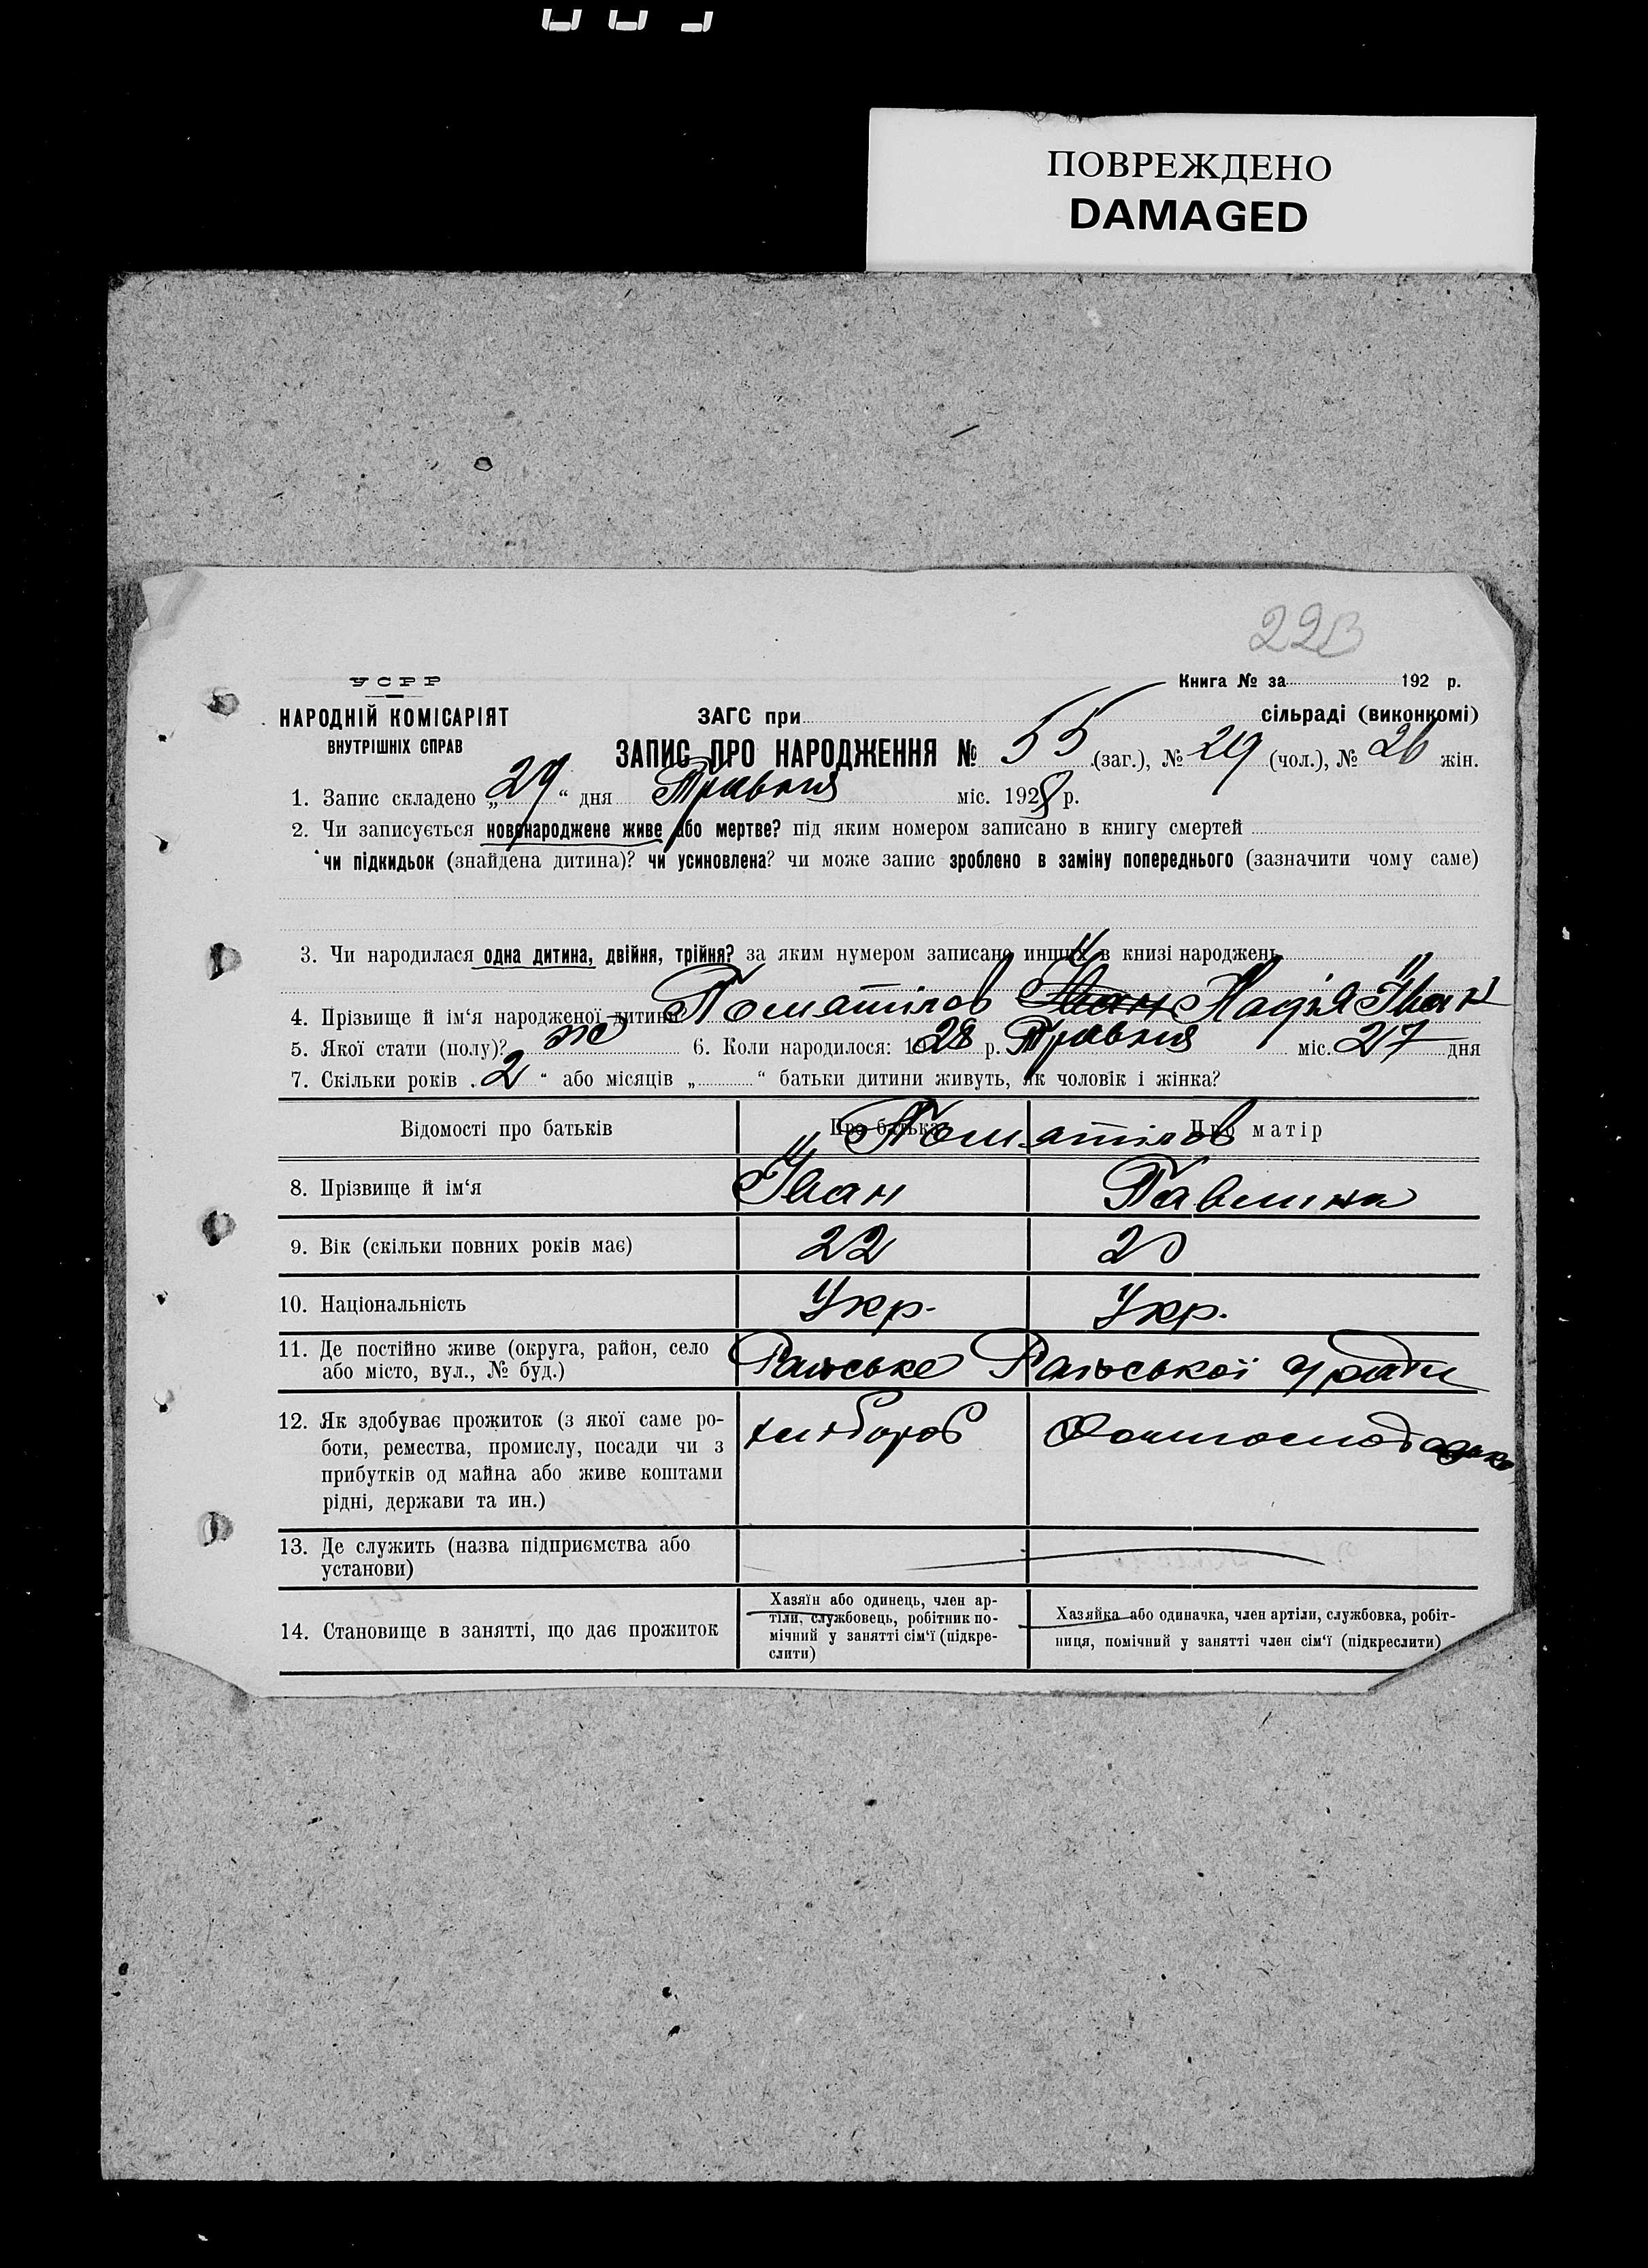 ПОВРЕЖДЕНО
DAMAGED
УСРР
НАРОДНІЙ КОМІСАРІЯТ
ВНУТРІШНІХ СПРАВ
Книга № за 192 р.
ЗАГС при сільраді (виконкомі)
ЗАПИС ПРО НАРОДЖЕННЯ № 55 (заг.), № 29 (чол.), № 26 жін.
1. Запис складено „29“ дня Травня міс. 1928 р.
2. Чи записується новонароджене живе або мертве? під яким номером записано в книгу смертей
чи підкидьок (знайдена дитина)? чи усиновлена? чи може запис зроблено в заміну попереднього (зазначити чому саме)
3. Чи народилася одна дитина, двійня, трійня? за яким нумером записано инших в книзі народжень
4. Прізвище й ім‘я народженої дитини Поматілов Надія Іван
5. Якої стати (полу)? ж 6. Коли народилося: 1928 р. Травня міс. 27 дня
7. Скільки років „2“ або місяців „ “ батьки дитини живуть, як чоловік і жінка?
Відомості про батьків Про батька Про матір
Поматілов
8. Прізвище й ім‘я Іван Павлина
9. Вік (скільки повних років має) 22 20
10. Національність Укр. Укр.
11. Де постійно живе (округа, район, село
або місто, вул., № буд.) Райське Райської с/ради
12. Як здобуває прожиток (з якої саме ро-
боти, ремества, промислу, посади чи з
прибутків од майна або живе коштами
рідні, держави та ин.) хлібороб
13. Де служить (назва підприємства або
установи)
14. Становище в занятті, що дає прожиток
Хазяїн або одинець, член ар-
тіли, службовець, робітник по-
мічний у занятті сім‘ї (підкре-
слити)
Хазяйка або одиначка, член артіли, службовка, робіт-
ниця, помічний у занятті член сім‘ї (підкреслити)